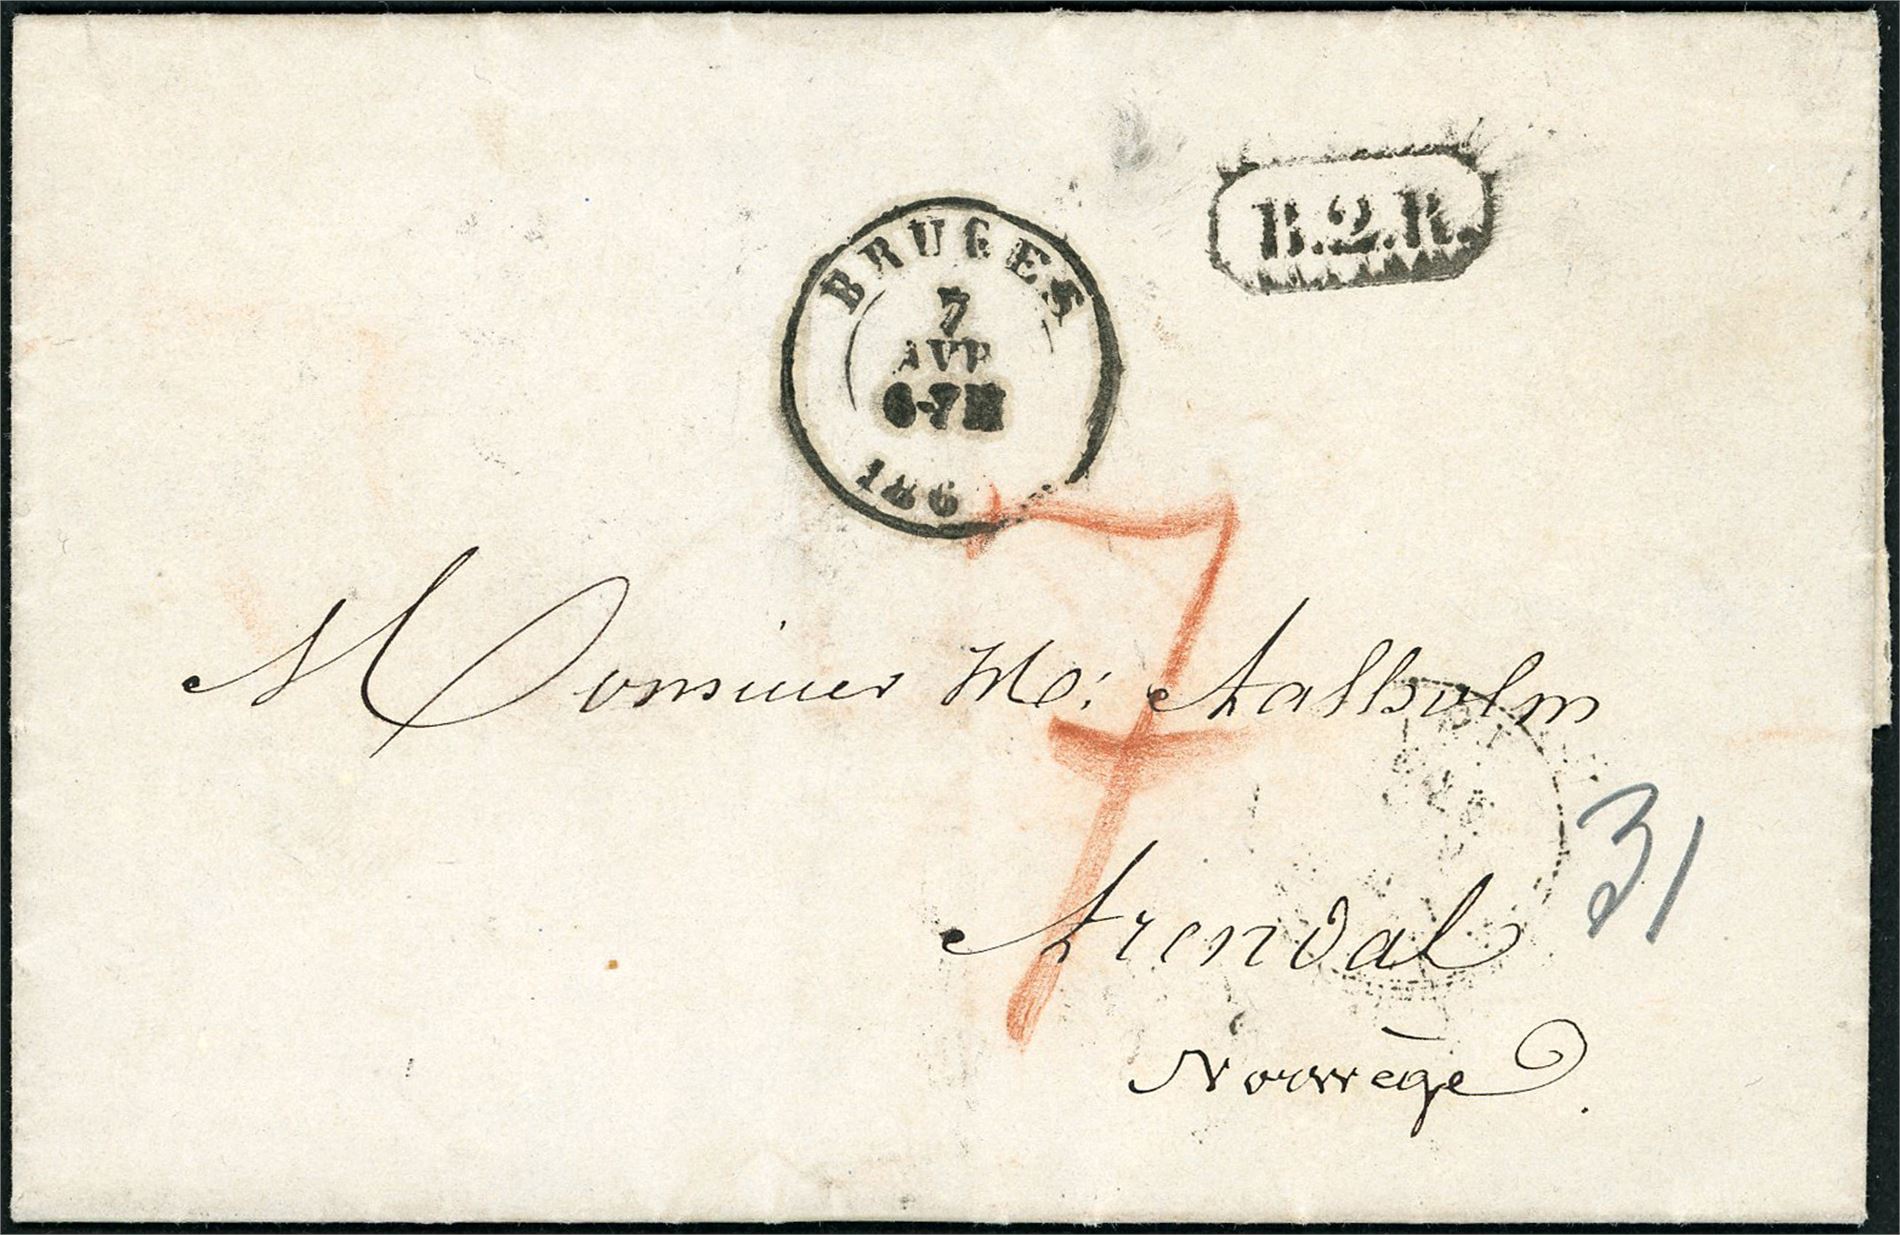 B.2.R.
BRUGES
7
AVR
6-7M
186
7
Monsieur M: Aalholm
31
Arendal
Norwège